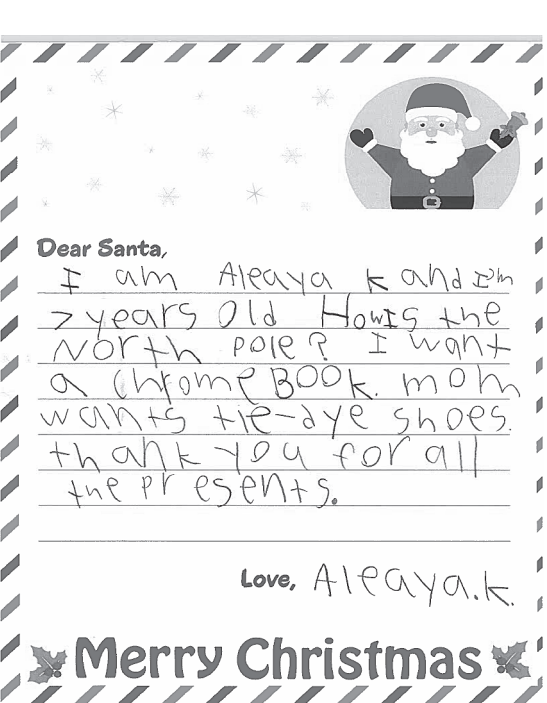 Dear Santa,
I am Aleaya K and I'm
7 years old How Is the
North pole? I want
a chrome BOOK. mom
wants tie-dye shoes.
thank you for all
the presents.
Love, Aleaya.K.
Merry Christmas